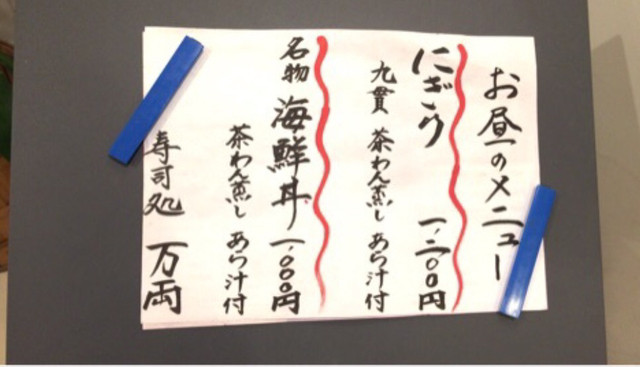 お昼のメニュー
にぎり 一、二〇〇円
九貫 茶わん蒸し あら汁付
名物 海鮮丼 一、〇〇〇円
茶わん蒸し あら汁付
寿司処 万両